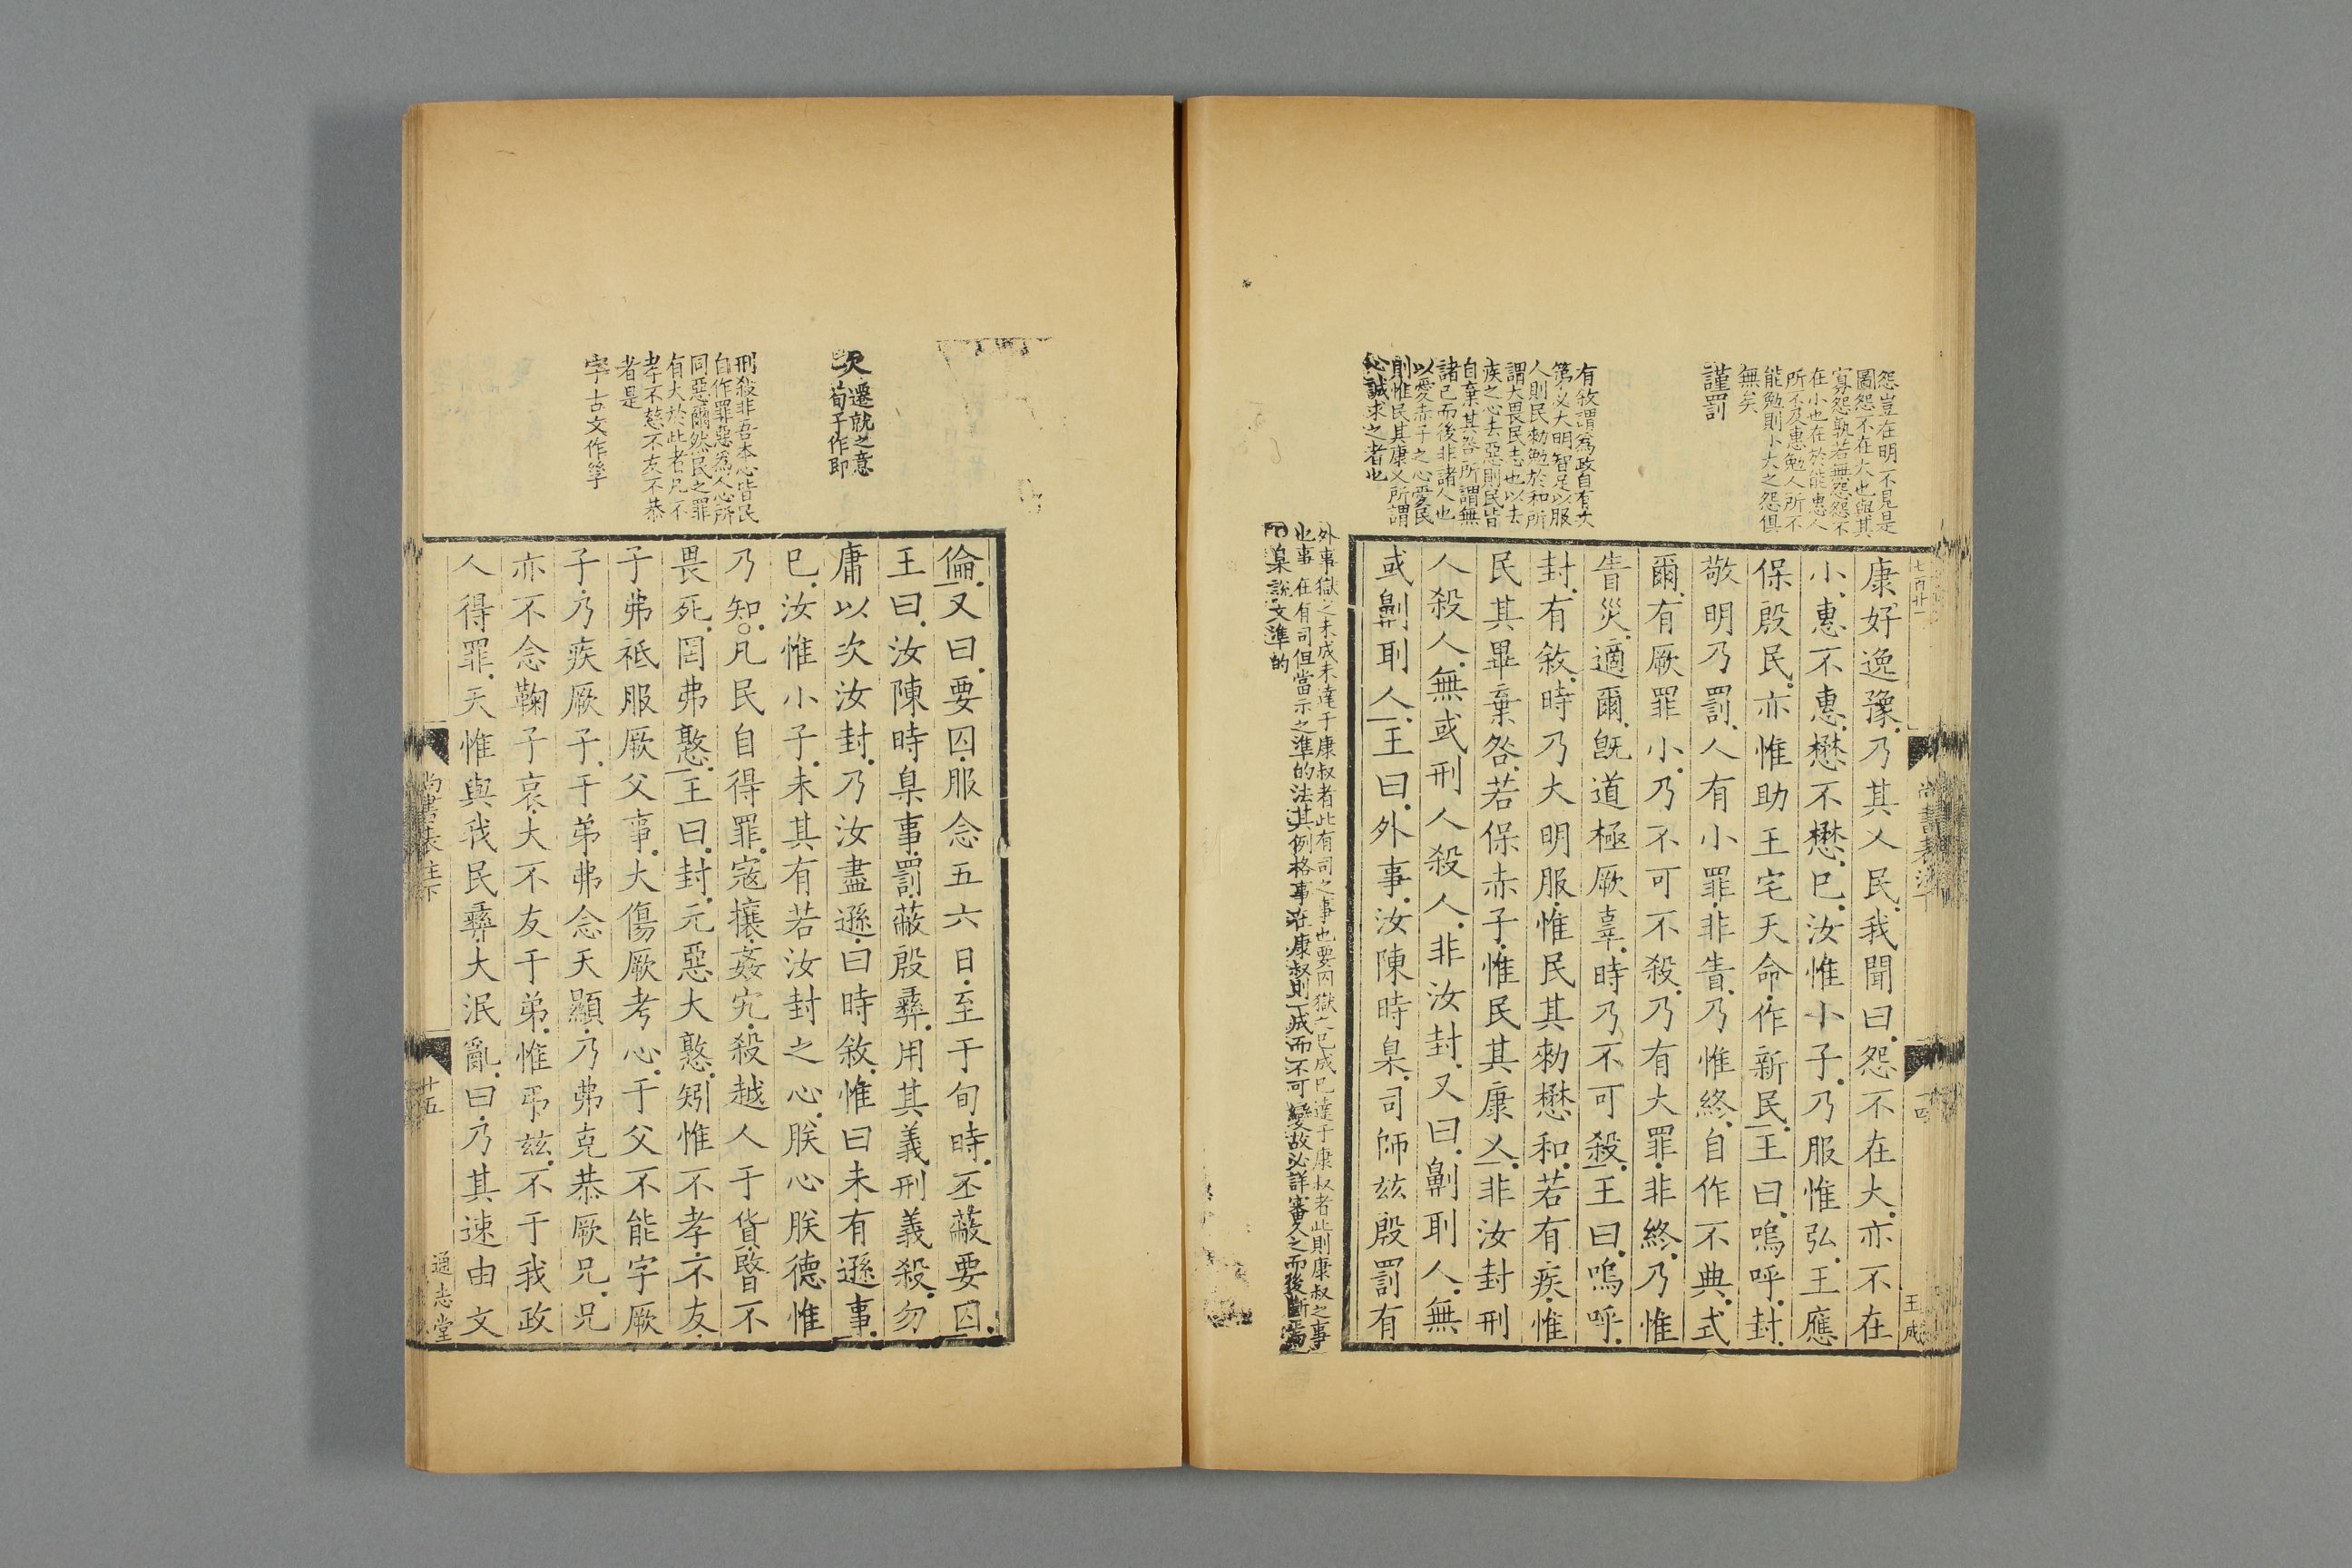 怨豈在明不見是
圖怨不在大也與其
寡怨孰若無怨怨不
在小也在於能惠人
所不及惠勉人所不
能勉則小大之怨俱
無矣
謹罰
有敘謂為政自有次
第必大明智足以服
人則民勑勉於和所
謂大畏民志也以去
疾之心去惡則民皆
自棄其咎所謂無
諸己而後非諸人也
以愛赤子之心愛民
則惟民其康乂所謂
心誠求之者也
七百廿一
尚書表注下
十四
王成
康好逸豫乃其乂民我聞曰怨不在大亦不在
小惠不惠懋不懋巳汝惟小子乃服惟弘王應
保殷民亦惟助王宅天命作新民王曰嗚呼封
敬明乃罰人有小罪非眚乃惟終自作不典式
爾有厥罪小乃不可不殺乃有大罪非終乃惟
眚災適爾旣道極厥辜時乃不可殺王曰嗚呼
封有敘時乃大明服惟民其勑懋和若有疾惟
民其畢棄咎若保赤子惟民其康乂非汝封刑
人殺人無或刑人殺人非汝封又曰劓刵人無
或劓刵人王曰外事汝陳時臬司師玆殷罰有
外事獄之未成未達于康叔者此有司之事也要囚獄之已成已達于康叔者此則康叔之事
也事在有司但當示之準的法其例格事在康叔則一成而不可變故必詳審久之而後斷焉
臬說文準的
次遷就之意
荀子作即
刑殺非吾本心皆民
自作罪惡為人心所
同惡爾然民之罪
有大於此者凡不
孝不慈不友不恭
者是
字古文作孳
倫又曰要囚服念五六日至于旬時丕蔽要囚
王曰汝陳時臬事罰蔽殷彝用其義刑義殺勿
庸以次汝封乃汝盡遜曰時敘惟曰未有遜事
巳汝惟小子未其有若汝封之心朕心朕德惟
乃知凡民自得罪寇攘姦宄殺越人于貨暋不
畏死罔弗憝王曰封元惡大憝矧惟不孝不友
子弗祗服厥父事大傷厥考心于父不能字厥
子乃疾厥子于弟弗念天顯乃弗克恭厥兄兄
亦不念鞠子哀大不友于弟惟弔玆不于我政
人得罪天惟與我民彝大泯亂曰乃其速由文
尚書表注下
十五
通志堂